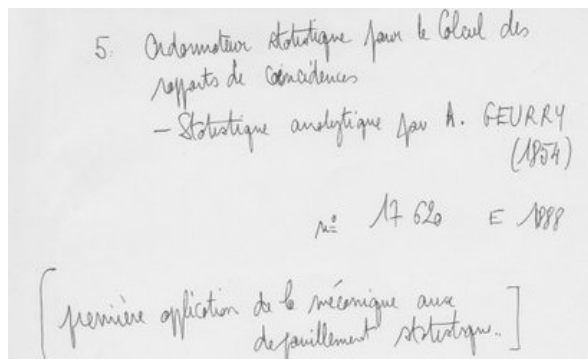 5. Ordonnateur statistique pour le Calcul des
rapports de coïncidences
- Statistique analytique par A. GEURRY
(1854)
n° 17 620 E 1888
[première application de la mécanique aux
depouillement statistique..]